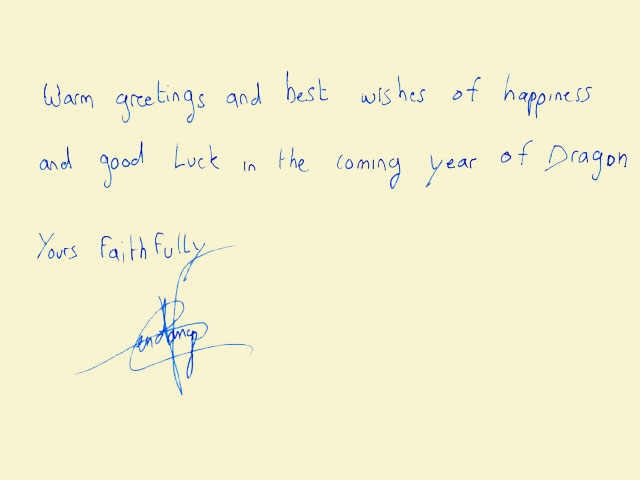 Warm greetings and best wishes of happiness
and good Luck in the coming year of Dragon
Yours FaithFully